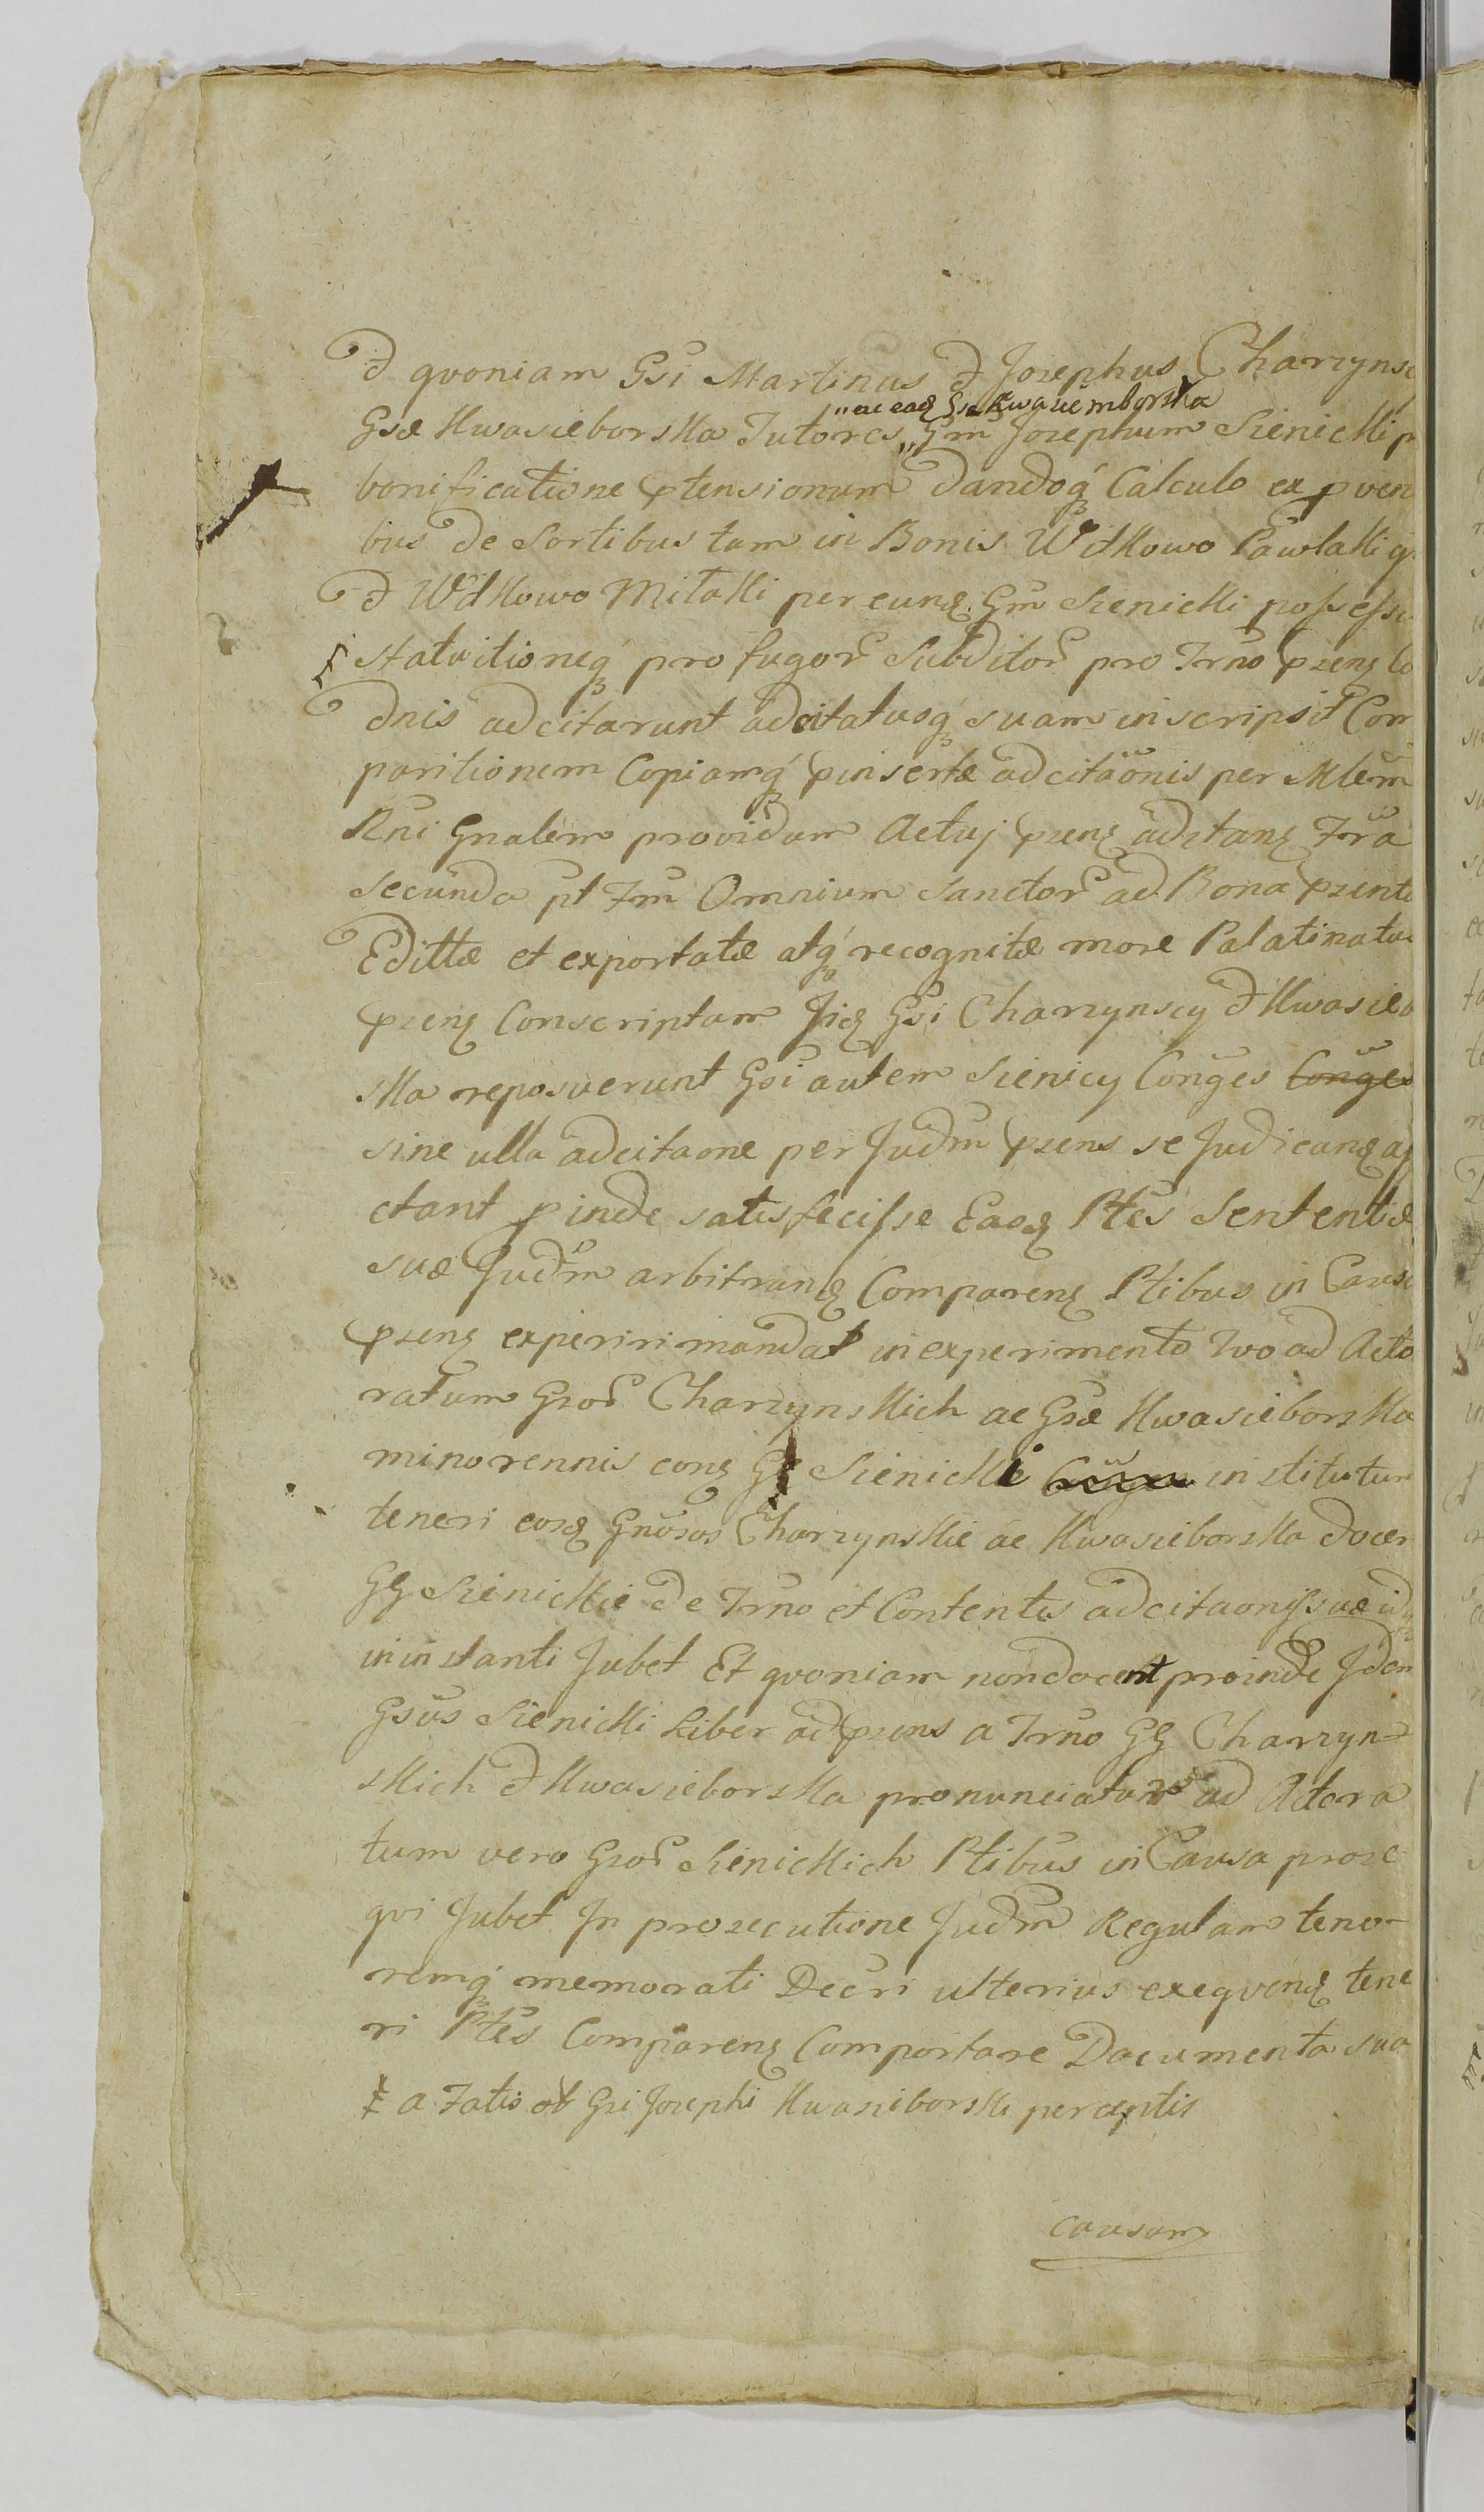 Et quoniam Gsi Martinus et Josephus Charzynsc
ac ead Gsa Kwasiemborska
Gsae Kwasieborska Tutores Gm Josephum Sienicki p
bonificatione ptensionum dandoq Calculo ex proven
bus de Sortibus tam in Bonis Witkowo Pawlaki q
et Witkowo Mitaki per eund Gm Sienicki possess
Statuitioneq profugor Subditor pro Trno psens
dnis adcitarunt adcitatusq suam inscripsit Com
paritionem Copiamq pinsertae adcitaonis per Mlem
Rni Gnalem providum Actuj psens adstans Fra
secunda pt Fm Omnium Sanctor ad Bona psente
Edittae et exportatae atq recognitae more Palatinatus
psens Conscriptam Jid Gsi Charzynscy et Kwasiebo
ska reposuerunt Gsi autem Sienicy Conges Conges
sine ulla adcitaone per Judm psens se Judicand a
ctant pinde satisfecisse Easd Ptes Sententiae
suae Judm arbitrand Comparens Ptibus in Causa
psens experiri mandat in experimento Tvo ad Acto
ratum Gsor Charzynskich ac Gsae Kwasieborska
minorennis cons Gs Sienicki institutum
teneri eosd Gnosos Charzynskie ac Kwasieborska docere
GG Sienickie de Trno et Contentis adcitaonis suae idq
in instanti Jubet Et quoniam non docent proinde Jdem
Gsus Sienicki Liber ad psens a Trno GG Charzyn-
skich et Kwasieborska pronunciatur ad Actora
tum vero Gsor Sienickich Ptibus in Causa prose
qui Jubet Jn prosecutione Judm Regulam teno-
remq memorati Decri ulterius exequend tene
ri Ptes Comparens Comportare Documenta sua
a Fatis ob Gsi Josephi Kwasiborski perceptis
causam